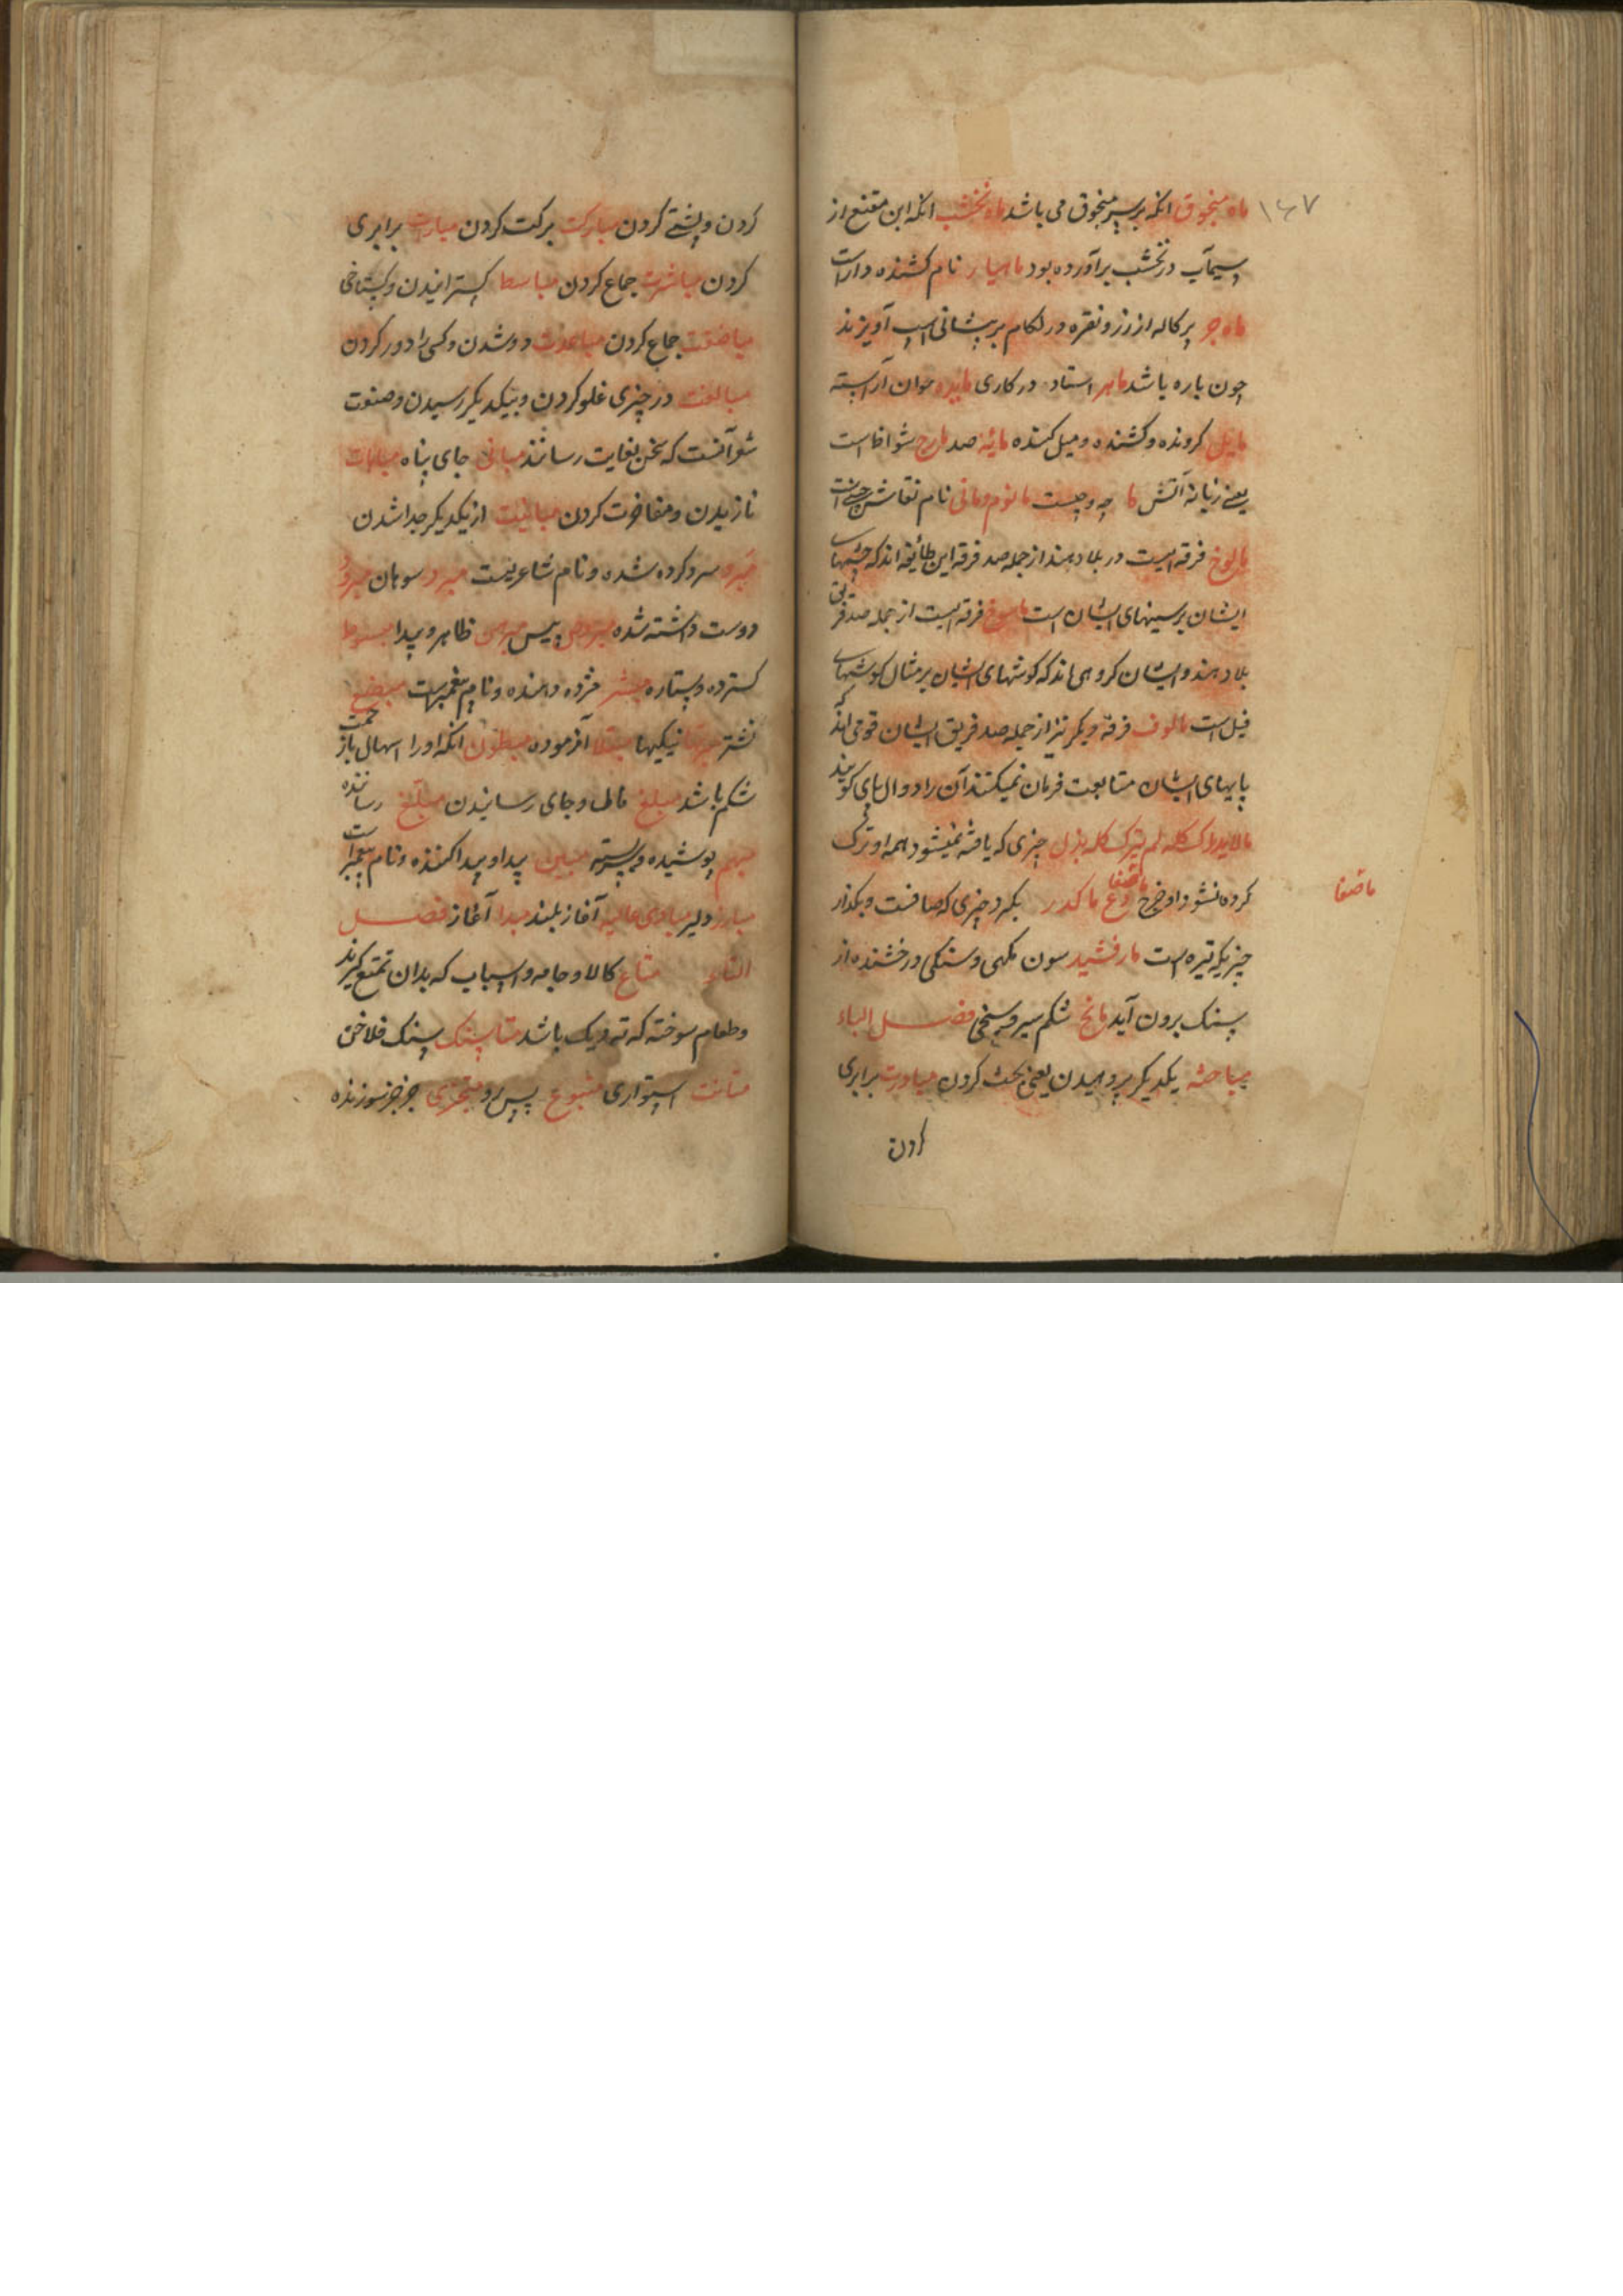 ۱۶۷
ماه منجوق انکه برسر منجوق می باشد ماه نخشب انکه ابن مقنع از
سیماب در نخشب برآورده بود ماهیار نام کشنده داراست
ماه جر پرکاله از زر و نقره در لکام بر پیشانی اسپ آویزند
چون باره باشد ماهر استاد در کاری مایده خوان آراسته
مایل کرونده و کشنده و میل کننده مائه صد مارج شواظ است
یعنی زبانه آتش ما چه و چیست مانوم و مانی نام نقاش چین است
مالوخ فرقه ایست در بلاد هند از جمله صد فرقه این طائفه اند که چشمهای
ایشان بر سینهای ایشان است ماسوخ فرقه ایست از جمله صد فرقه
بلاد هند و ایشان کروهی اند که کوشهای ایشان بر مثال کوشهای
فیل است مالوف فرقه دیکر نیز از جمله صد فریق ایشان قومی اند که
پایهای ایشان متابعت فرمان نمیکنند آن را دوال پای کویند
مالایدرک کله لم یترک کله بذل چیزی که یافته نمیشود همه او ترک
کرده نشود او خرج ماصفا دع ماکدر بکیر چیزی که صافست و بکذار
ماصفا
چیزیکه تیره است مارقشید سون مکهی و سنکی درخشنده از
سنک برون آید مانح شکم سیر و سنجی فصل الباء
مباحثه یکدیکر پروهیدن یعنی بحث کردن مبادرت برابری
کردن
کردن و پیشی کردن مبارکت برکت کردن مبارت برابری
کردن مباشرت جماع کردن مباسطا کسترانیدن و کستاخی
مباضعت جماع کردن مباعدت دور شدن و کسی را دور کردن
مبالغت در چیزی غلو کردن و بیکدیکر رسیدن و صنعت
شعر آنست که سخن بغایت رسانند مبانی جای بناه مباهات
نازیدن و مفاخرت کردن مباینت از یکدیکر جدا شدن
مبرد سرد کرده شده و نام شاعریست مبرد سوهان مبرور
دوست داشته شده مبروص پیس مبرهن ظاهر و پیدا مبسوط
کسترده و ستاره مبشر مژده دهنده و نام پیغمبر است مبضع
نشتر مبرتها نیکیها مبتلا آزموده مبطون انکه او را اسهال باز
شکم باشد مبلغ مال و جای رسانیدن مبلغ رساننده
مبهم پوشیده و بسته مبین پیدا و پیدا کننده و نام پیغمبر است
مبارز دلیر مبادی عالیه آغاز بلند مبدا آغاز فصل
التاء متاع کالا و جامه و اسباب که بدان تمتع کیرند
و طعام سوخته که ته دیک باشد متاسنک سنک فلاخن
متانت استواری متبوع پس رو متجزی جزجز سوزنده